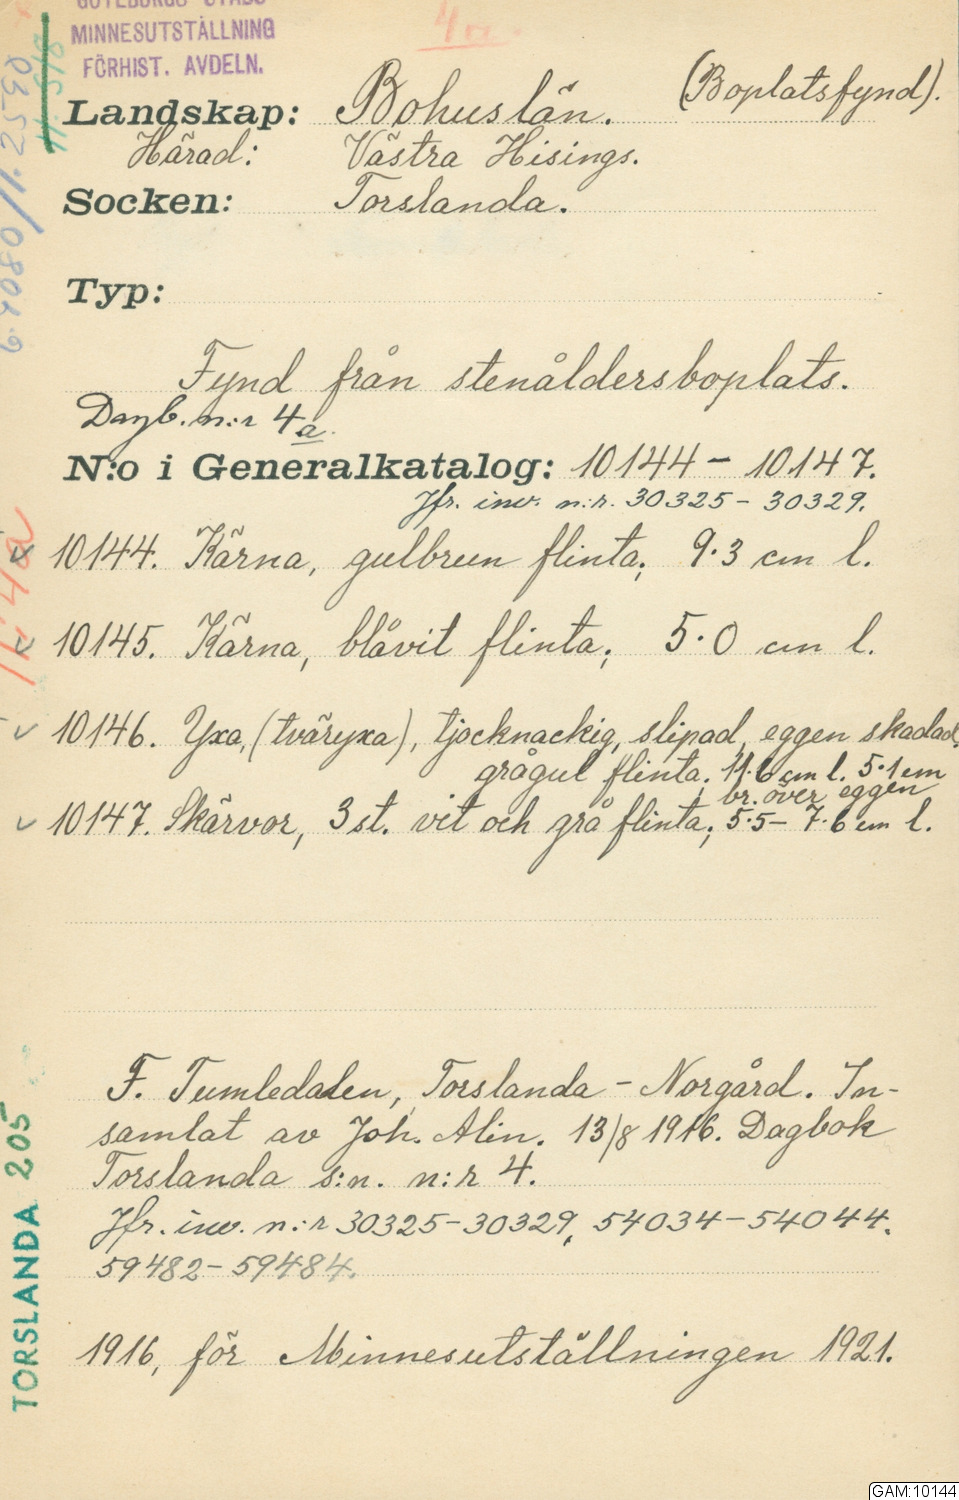 GÖTEBORGS STADS
MINNESUTSTÄLLNING
FÖRHIST. AVDELN.
4a.
(Boplatsfynd).
Landskap: Bohuslän.
Härad: Västra Hisings.
Socken: Torslanda.
Typ:
Fynd från stenåldersboplats.
Dagb. n:r 4a.
N:o i Generalkatalog: 10144 - 10147.
Jfr. inv. n:r. 30325 - 30329.
10144. Kärna, gulbrun flinta; 9.3 cm l.
10145. Kärna, blåvit flinta; 5.0 cm l.
10146. Yxa, (tväryxa), tjocknackig, slipad, eggen skadad,
grågul flinta. 11.6 cm l. 5.1 cm
br. över eggen
10147. Skärvor, 3 st. vit och grå flinta; 5.5 - 7.6 cm l.
F. Tumledalen, Torslanda - Norgård. In-
samlat av Joh. Alin. 13/8 1916. Dagbok
Torslanda s:n. n:r 4.
Jfr. inv. n:r 30325-30329, 54034-54044.
59482-59484.
1916, för Minnesutställningen 1921.
TORSLANDA 205
GAM:10144